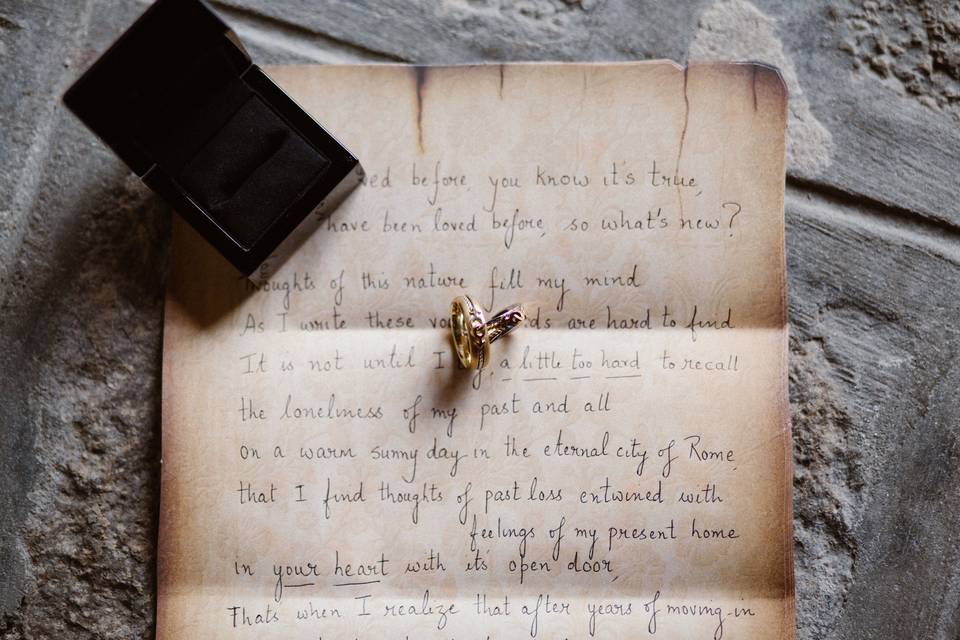 before, you know it's true,
have been loved before, so what's new?
of this nature fill my mind
As I write these are hard to find
It is not until I a little too hard to recall
the loneliness of my past and all
on a warm sunny day in the eternal city of Rome
that I find thoughts of past loss entwined with
feelings of my present home
in your heart with its open door,
Thats when I realize that after years of moving-in